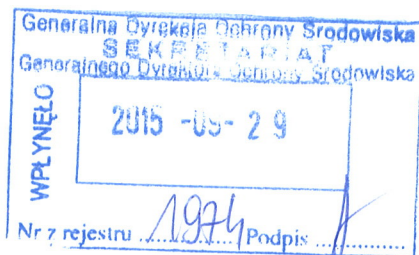 Generalna Dyrekcja Ochrony Środowiska
SEKRETARIAT
Generalnego Dyrektora Ochrony Środowiska
WPŁYNĘŁO
2015 29
Nr z rejestru 1974 Podpis